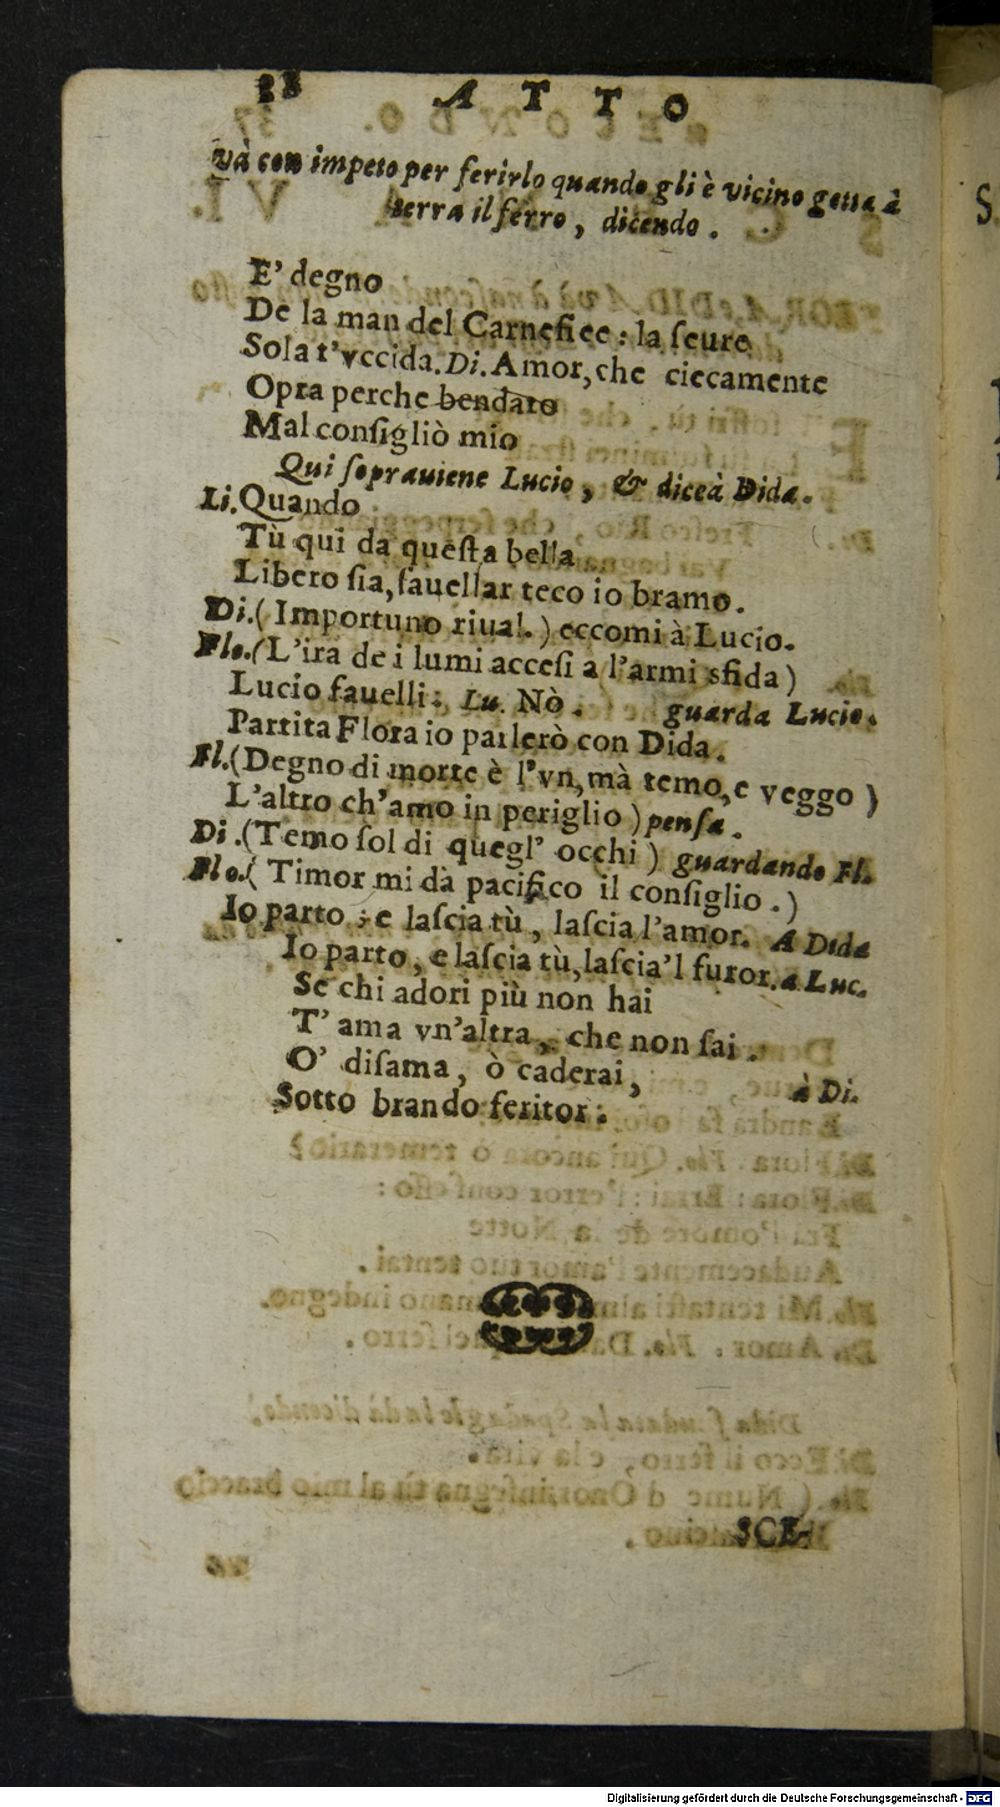 38 A T T O
và con impeto per ferirlo quando gli è vicino getta à
terra il ferro, dicendo.
E' degno
De la man del Carnefice: la ſcure
Sola t'vccida. Di. Amor, che ciecamente
Opra perche bendato
Mal conſigliò mio
Qui ſoprauiene Lucio, & dice à Dida.
Li. Quando
Tù qui da queſta bella
Libero ſia, fauellar teco io bramo.
Di. (Importuno riual.) eccomi à Lucio.
Flo. (L'ira de i lumi acceſi a l'armi sfida)
Lucio fauelli: Lu. Nò. guarda Lucio.
Partita Flora io parlerò con Dida.
Fl. (Degno di morte è l'vn, mà temo, e veggo)
L'altro ch'amo in periglio) penſa.
Di. (Temo ſol di quegl' occhi) guardando Fl.
Flo. (Timor mi dà pacifico il conſiglio.)
Io parto; e laſcia tù, laſcia l'amor. A Dida
Io parto, e laſcia tù, laſcia'l furor. a Luc.
Se chi adori più non hai
T' ama vn'altra, che non ſai.
O' diſama, ò caderai, à Di.
Sotto brando feritor.
SCE-
Digitalisierung gefördert durch die Deutsche Forschungsgemeinschaft - DFG